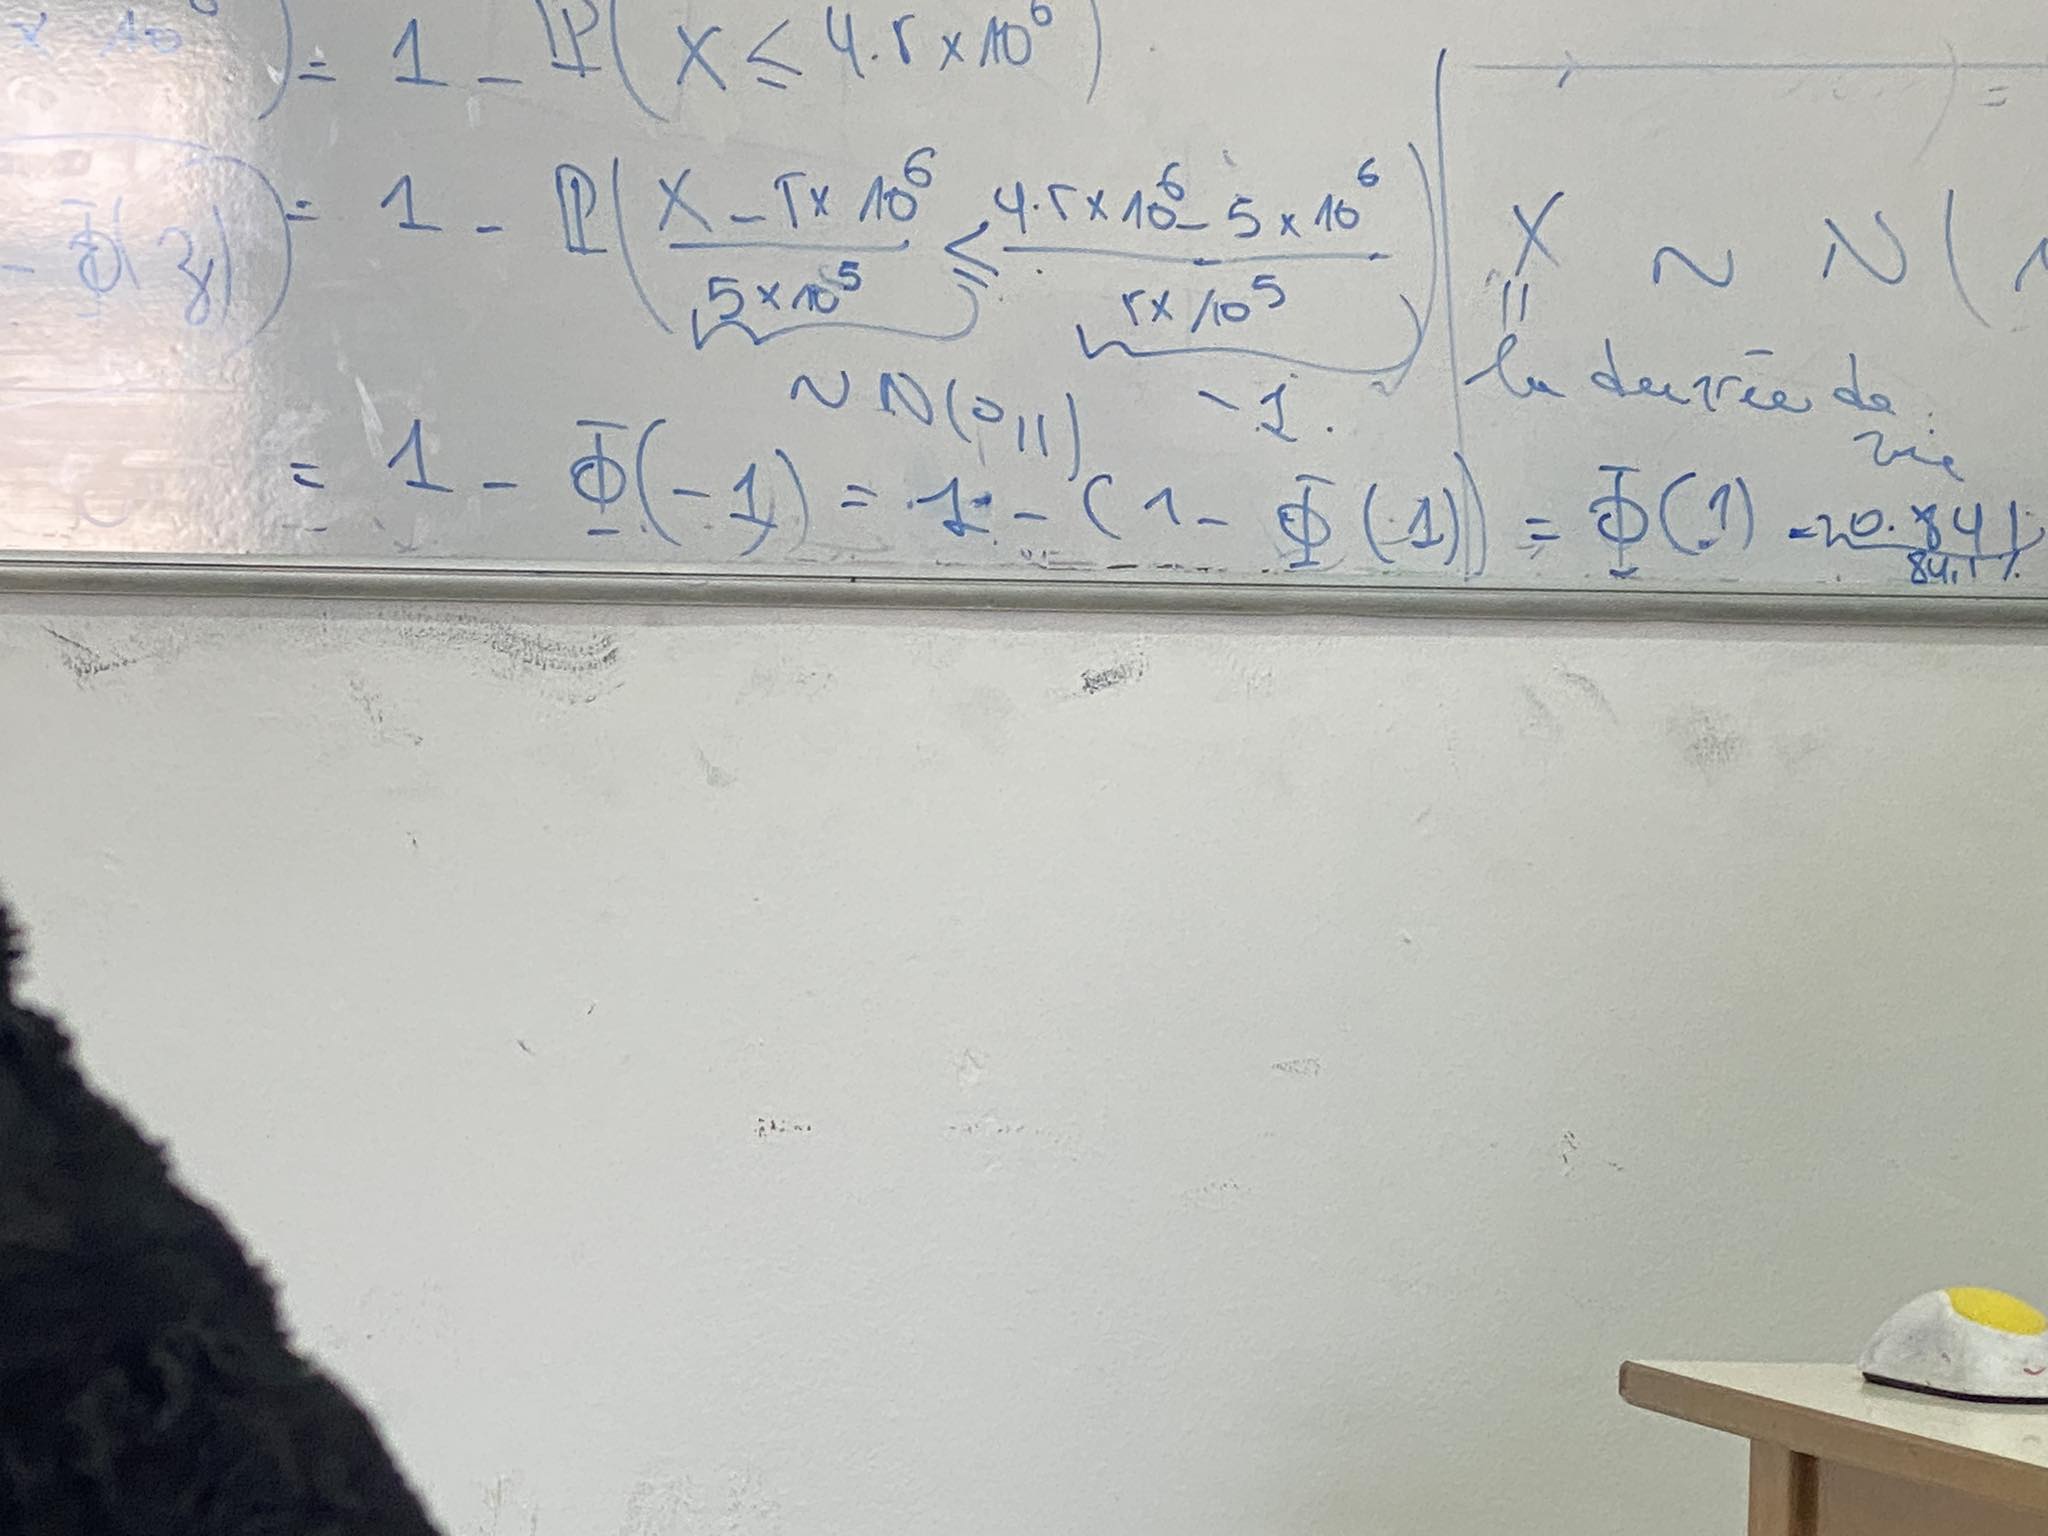 x 10⁶) = 1 - ℙ(X ≤ 4.5 x 10⁶)
- Φ(3)) = 1 - ℙ( (X - 5 x 10⁶) / (5 x 10⁵) ≤ (4.5 x 10⁶ - 5 x 10⁶) / (5 x 10⁵) )
~ N(0,1) -1.
= 1 - Φ(-1) = 1 - (1 - Φ(1)) = Φ(1) = 0.841
84,1 %
=
X ~ N(
=
la durée de
vie